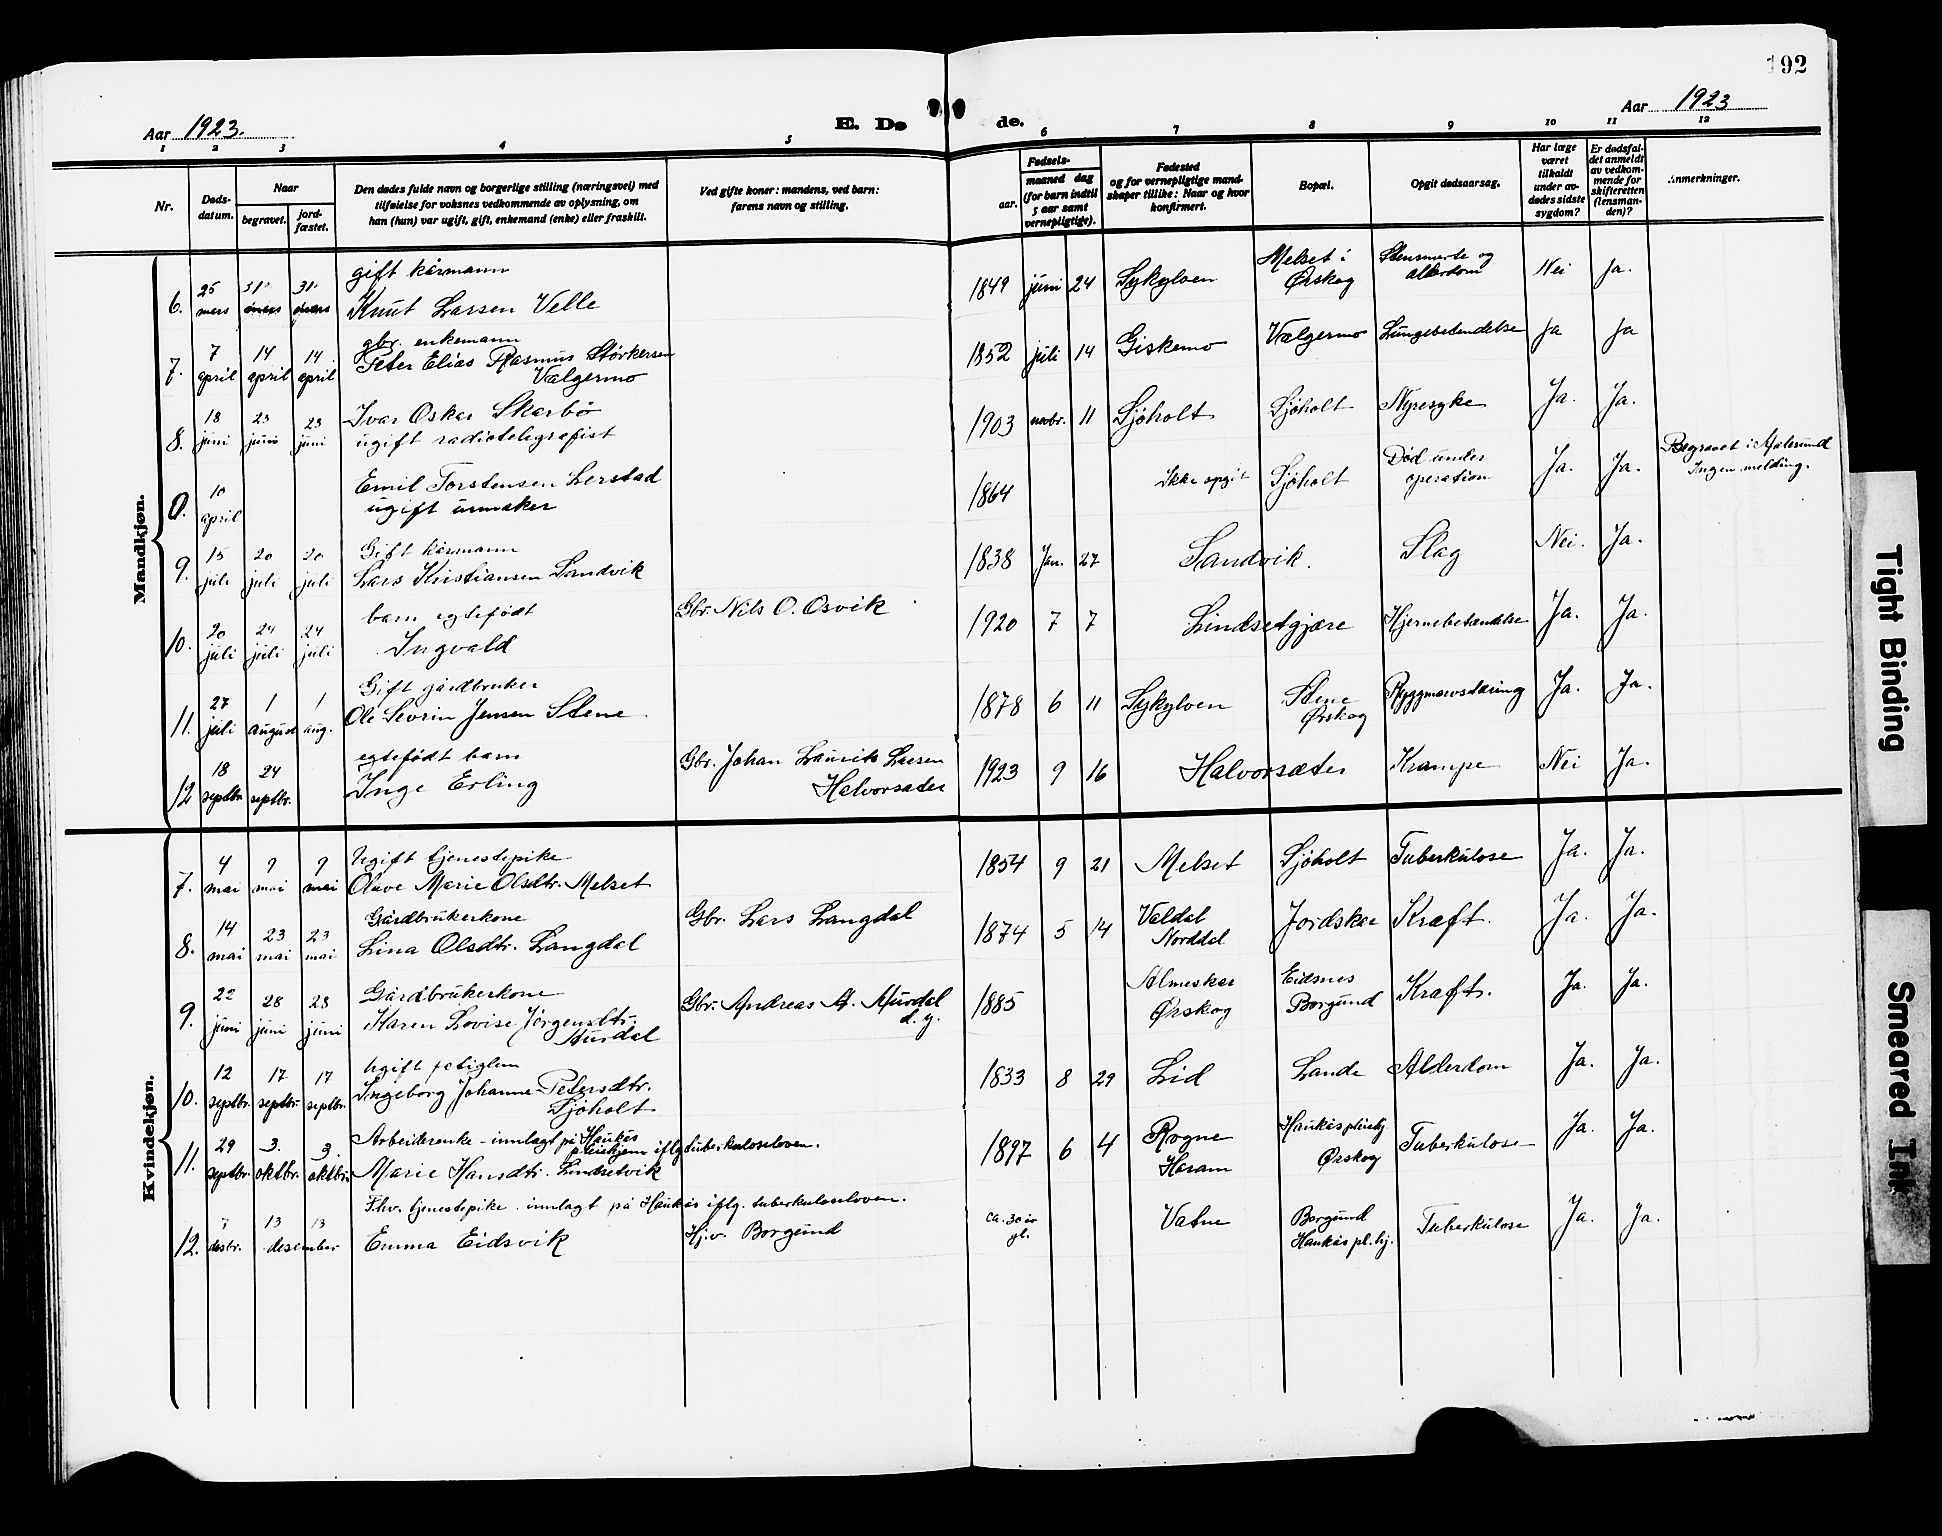 192
Aar 1923.
E. Dø
de.
Aar 1923
1 2 3 4 5 6 7 8 9 10 11 12
Nr.
Døds-
datum.
Naar
begravet.
jord-
fæstet.
Den dødes fulde navn og borgerlige stilling (næringsvei) med
tilføielse for voksnes vedkommende av oplysning, om
han (hun) var ugift, gift, enkemand (enke) eller fraskilt.
Ved gifte koner: mandens, ved barn:
farens navn og stilling.
Fødsels-
aar.
maaned dag
(for barn indtil
5 aar samt
vernepligtige).
Fødested
og for vernepligtige mand-
skaper tillike: Naar og hvor
konfirmert.
Bopæl.
Opgit dødsaarsag.
Har læge
været
tilkaldt
under av-
dødes sidste
sygdom?
Er dødsfal-
det anmeldt
av vedkom-
mende for
skifteretten
(lensman-
den)?
Anmerkninger.
Mandkjøn.
6. 25 mars 31. mars 31. mars
gift kårmann
Knut Larsen Velle
1849 juni 24 Sykylven Melset i Ørskog Stensmerte og alderdom Nei Ja.
7. 7 april 14 april 14. april
gbr. enkemann
Peter Elias Rasmus Størkersen
Valgermo
1852 juli 14 Giskemo Valgermo Lungebetendelse Ja Ja
8. 18 juni 23 juni 23 juni
Ivar Oskar Skarbø
ugift radiotelegrafist
1903 novbr. 11 Sjøholt Sjøholt Nyresyke Ja. Ja.
0. 10 april
Emil Torstensen Lerstad
ugift urmaker
1864 Ikke opgit Sjøholt Død under operation Ja. Ja. Begravet i Aalesund
Ingen melding.
9. 15 juli 20 juli 20 juli
Gift kårmann
Lars Kristiansen Sandvik
1838 Jan. 27 Sandvik. Slag Nei. Ja.
10. 20 juli 24 juli 24 juli
barn egtefødt
Ingvald
Gbr. Nils O. Osvik
1920 7 7 Lindsetgjære Hjernebetændelse Ja. Ja.
11. 27 juli 1 august 1 aug.
Gift gårdbruker
Ole Severin Jensen Stene
1878 6 11 Sykylven Stene Ørskog Ryggmarvstæring Ja. Ja.
12 18 septbr. 24 septbr.
egtefødt barn
Inge Erling
Gbr. Johan Laurits Larsen
Halvorsæter
1923 9 16 Halvorsæter Krampe Nei Ja.
Kvindekjøn.
7. 4 mai 9 mai 9 mai
Ugift tjenestepike
Olave Marie Olsdtr. Melset
1854 9 21 Melset Sjøholt Tuberkulose Ja. Ja.
8. 14 mai 23 mai 23 mai
Gårdbrukerkone
Lina Olsdtr. Langdal
Gbr. Lars Langdal
1874 5 14 Valdal Norddal Jordskar Kræft. Ja. Ja.
9. 22 juni 28 juni 28 juni
Gårdbrukerkone
Karen Lovise Jørgensdtr.
Aursdal
Gbr. Andreas A. Aursdal
d. y.
1885 Almeskar Ørskog Eidsnes Borgund Kræft. Ja. Ja.
10. 12 septbr. 17 septbr. 17 septbr.
Ugift fatiglem
Ingeborg Johanne Petersdtr.
Sjøholt
1833 8 29 Lid Lande Alderdom Ja. Ja.
11. 29 septbr. 3. oktbr. 3. oktbr.
Arbeiderenke - innlagt på Haukås
pleiehjem iflg. tuberkuloseloven.
Marie Hansdtr. Lindsetvik
1897 6 4 Rogne Haram Haukås pleiehj. Ørskog Tuberkulose Ja. Ja.
12. 7 desbr. 13 13 desember
Fhv. tjenestepike innlagt på Haukås iflg. tuberkuloseloven.
Emma Eidsvik
Hj.v. Borgund
ca. 30 år gl. Vatne Borgund Haukås pl.hj. Tuberkulose Ja. Ja.
Tight Binding
Smeared Ink